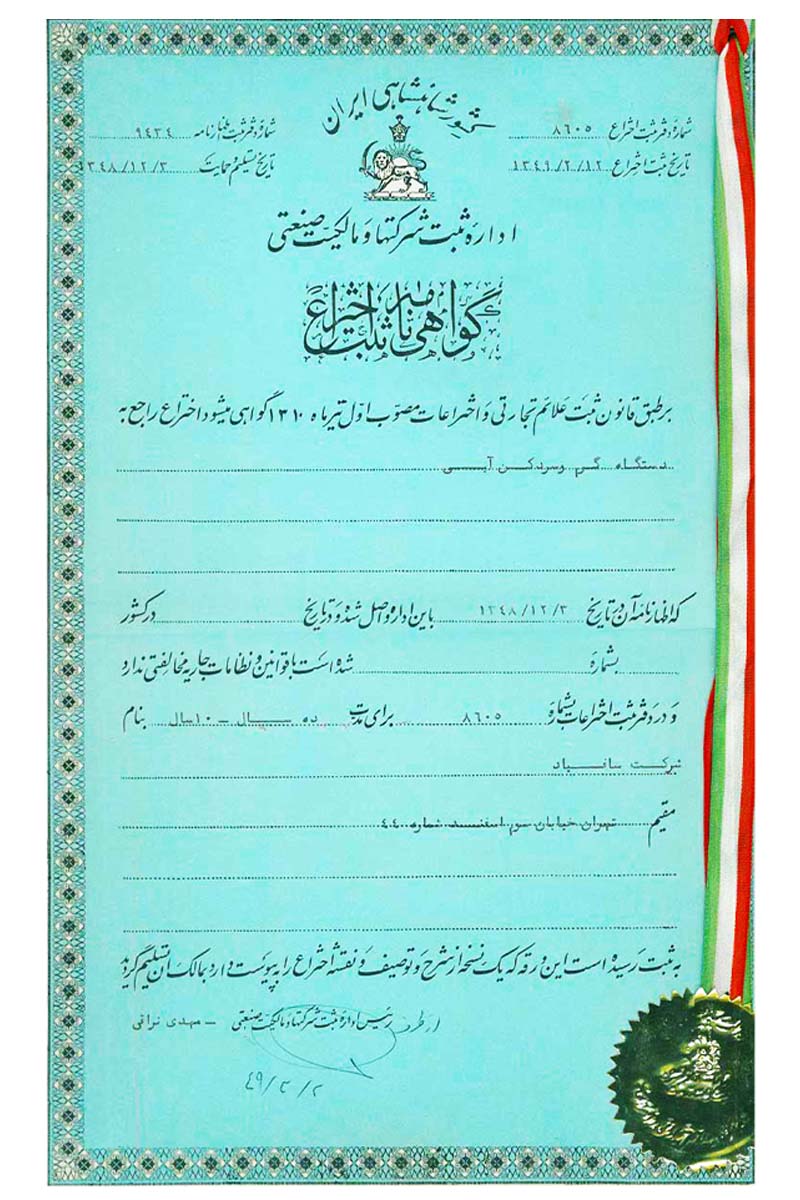 کشور شاهنشاهی ایران
شماره دفتر ثبت اختراع ۸۶۰۵
شماره دفتر ثبت اظهارنامه ۹۴۳۴
تاریخ ثبت اختراع ۱۳۴۹/۲/۱۲
تاریخ تسلیم و حمایت ۱۳۴۸/۱۲/۳
اداره ثبت شرکتها و مالکیت صنعتی
گواهی نامه ثبت اختراع
بر طبق قانون ثبت علائم تجارتی و اختراعات مصوب اول تیر ماه ۱۳۱۰ گواهی میشود اختراع راجع به
دستگاه گرم و سرد کن آبی
که اظهارنامه آن در تاریخ ۱۳۴۸/۱۲/۳ باین اداره واصل شده و در تاریخ در کشور
بشماره شده است با قوانین و نظامات جاریه مخالفتی ندارد
و در دفتر ثبت اختراعات بشماره ۸۶۰۵ برای مدت ده سال - ۱۰ سال بنام
شرکت سافیاد
مقیم تهران خیابان سوم اسفند شماره ۴۴
به ثبت رسیده است این ورقه که یک نسخه از شرح و توصیف و نقشه اختراع را به پیوست دارد بمالک آن تسلیم گردید
از طرف رئیس اداره ثبت شرکتها و مالکیت صنعتی - مهدی نراقی